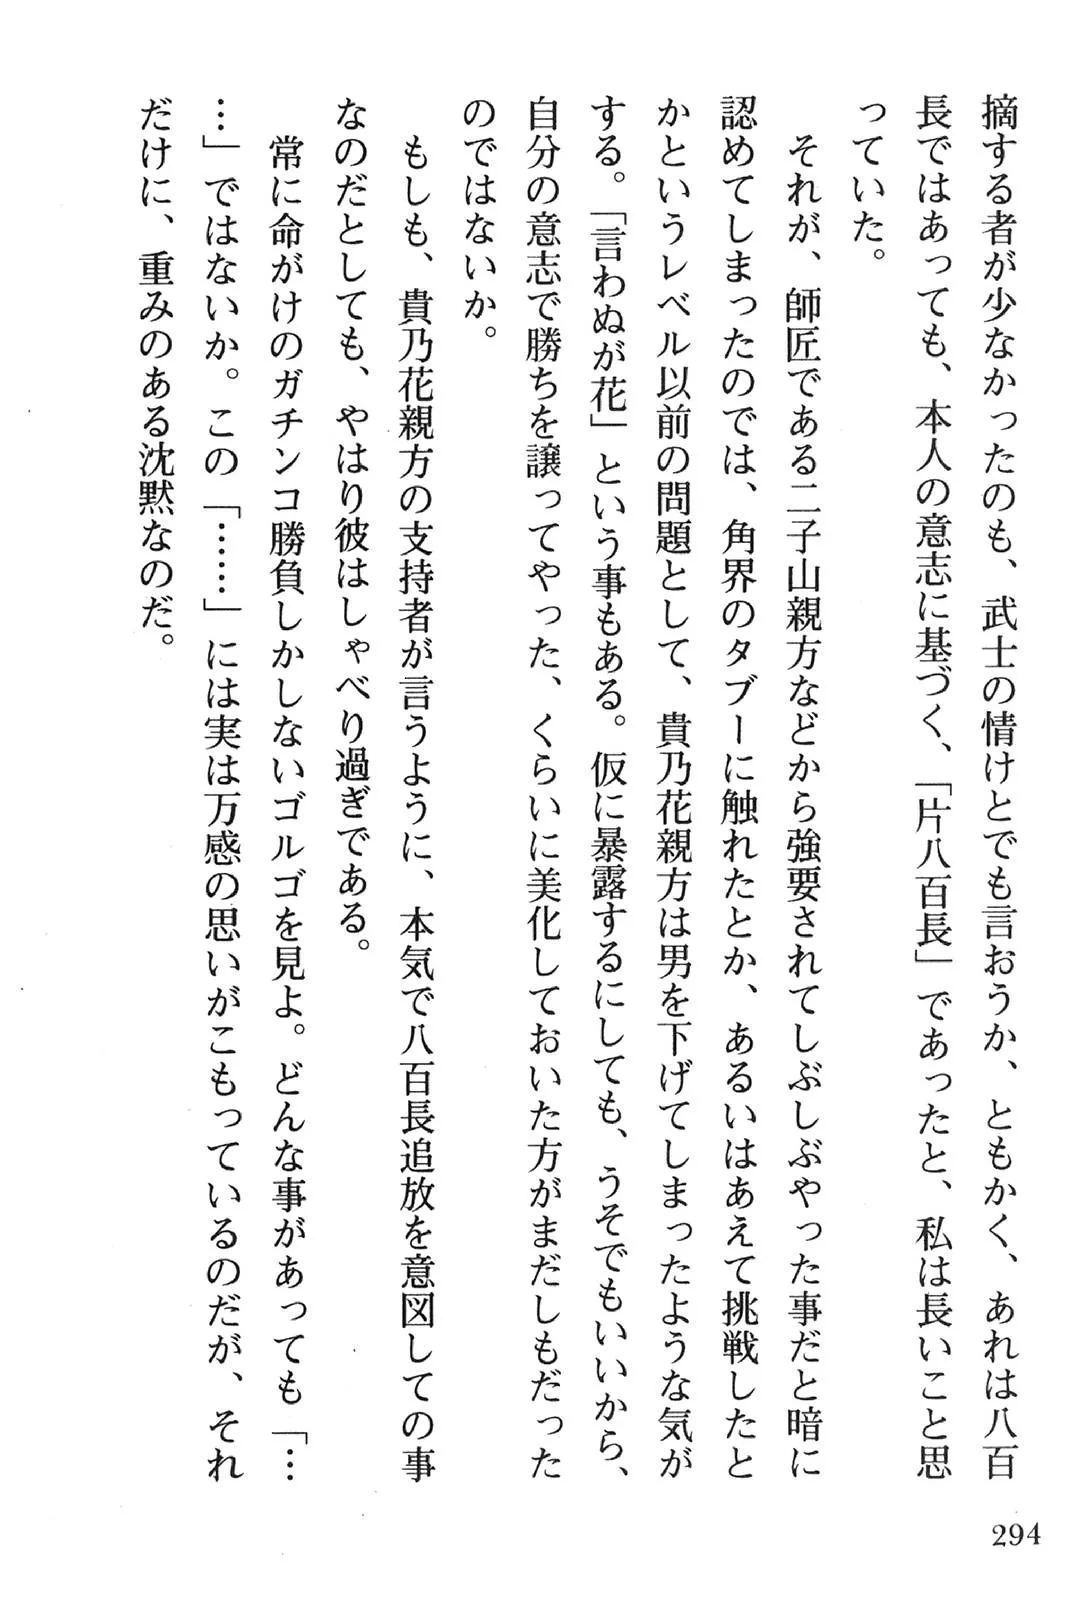 摘する者が少なかったのも、武士の情けとでも言おうか、ともかく、あれは八百
長ではあっても、本人の意志に基づく、「片八百長」であったと、私は長いこと思
っていた。
　それが、師匠である二子山親方などから強要されてしぶしぶやった事だと暗に
認めてしまったのでは、角界のタブーに触れたとか、あるいはあえて挑戦したと
かというレベル以前の問題として、貴乃花親方は男を下げてしまったような気が
する。「言わぬが花」という事もある。仮に暴露するにしても、うそでもいいから、
自分の意志で勝ちを譲ってやった、くらいに美化しておいた方がまだしもだった
のではないか。
　もしも、貴乃花親方の支持者が言うように、本気で八百長追放を意図しての事
なのだとしても、やはり彼はしゃべり過ぎである。
　常に命がけのガチンコ勝負しかしないゴルゴを見よ。どんな事があっても「…
…」ではないか。この「……」には実は万感の思いがこもっているのだが、それ
だけに、重みのある沈黙なのだ。
294